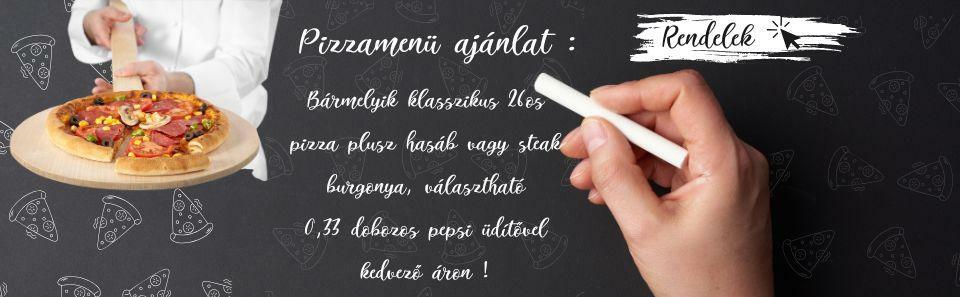 Pizzamenü ajánlat :
Rendelek
Bármelyik klasszikus 26os
pizza plusz hasáb vagy steak
burgonya, választható
0,33 dobozos pepsi üdítővel
kedvező áron !